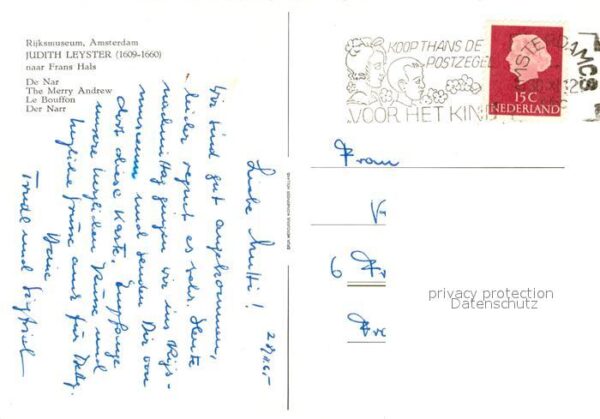 Rijksmuseum, Amsterdam
JUDITH LEYSTER (1609-1660)
naar Frans Hals
De Nar
The Merry Andrew
Le Bouffon
Der Narr
KOOP THANS DE
POSTZEGEL
VOOR HET KIND
AMSTERDAM
15 C
NEDERLAND
Liebe Mutti!
Wir sind gut angekommen,
leider regnet es sehr. Heute
nachmittag gingen wir ins Rijks-
museum und senden Dir von
dort diese Karte. Empfange
unsere herzlichen Grüsse und
herzliche Grüsse auch für
Deine
Trudl und Siegfried
Frau
V
6
privacy protection
Datenschutz